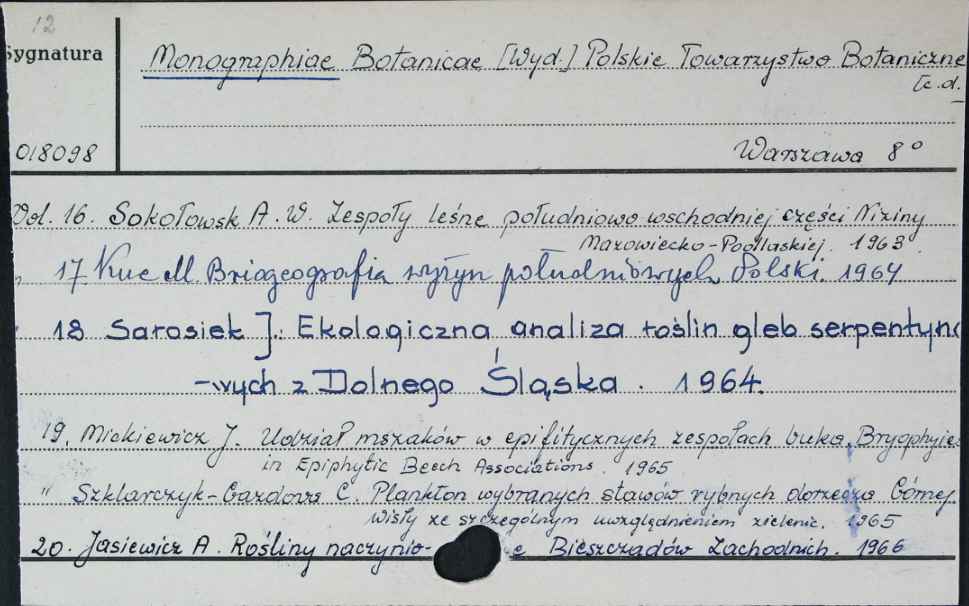 12
Sygnatura
Monographiae Botanicae [Wyd.] Polskie Towarzystwo Botaniczne
[c.d.
018098
Warszawa 8°
Vol. 16. Sokołowsk A. W. Zespoły leśne południowo wschodniej części Niziny
Mazowiecko-Podlaskiej. 1963.
„ 17 Kuc M. Briogeografia wyżyn południowych Polski. 1964
18 Sarosiek J.: Ekologiczna analiza roślin gleb serpentyno
-wych z Dolnego Śląska. 1964.
19. Mickiewicz J. Udział mszaków w epifitycznych zespołach buka. Bryophytes
in Epiphytic Beech Associations. 1965
" Szklarczyk-Gazdowa C. Plankton wybranych stawów rybnych dorzecza Górnej
Wisły ze szczególnym uwzględnieniem zielenic. 1965
20. Jasiewicz A. Rośliny naczynio- e Bieszczadów Zachodnich. 1966